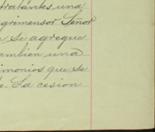 trabantes una
agrimensor Señor
se agregue
tambien una
imonios que se
La cesion